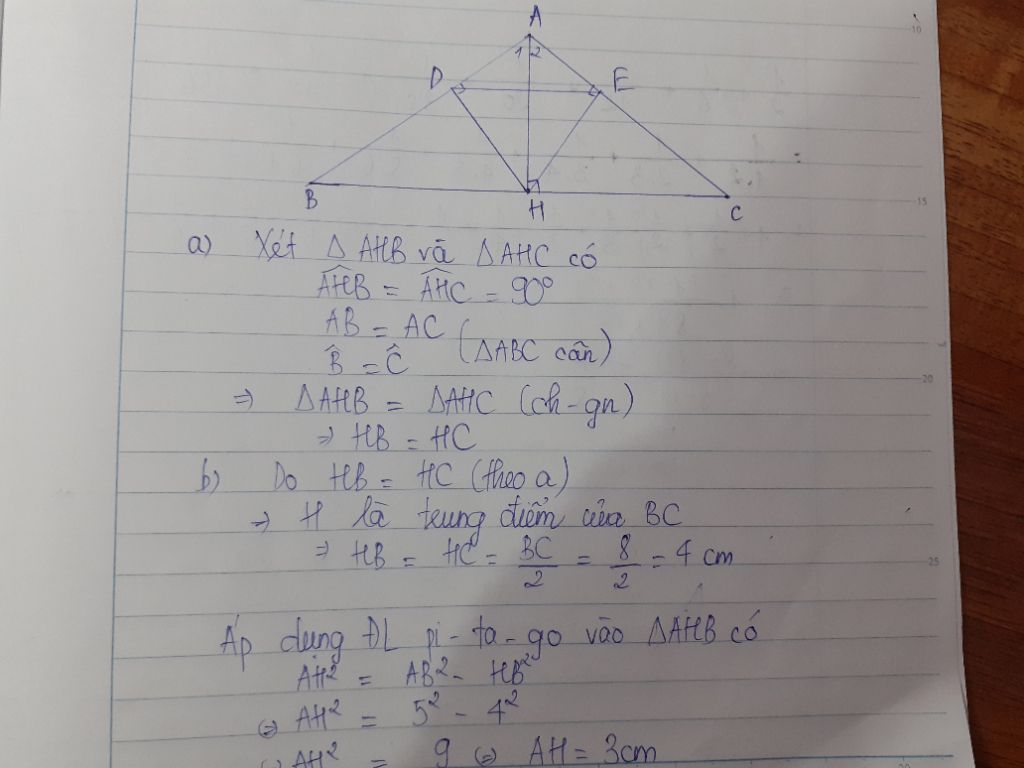 A
1 2
D E
B H C
a) Xét Δ AHB và Δ AHC có
$\widehat{AHB}$ = $\widehat{AHC}$ = 90°
AB = AC
B̂ = Ĉ (ΔABC cân)
⇒ ΔAHB = ΔAHC (ch-gn)
⇒ HB = HC
b) Do HB = HC (theo a)
⇒ H là trung điểm của BC
⇒ HB = HC = BC/2 = 8/2 = 4 cm
Áp dụng ĐL pi-ta-go vào ΔAHB có
AH² = AB² - HB²
⇔ AH² = 5² - 4²
⇔ AH² = 9 ⇔ AH = 3cm
10
15
20
25